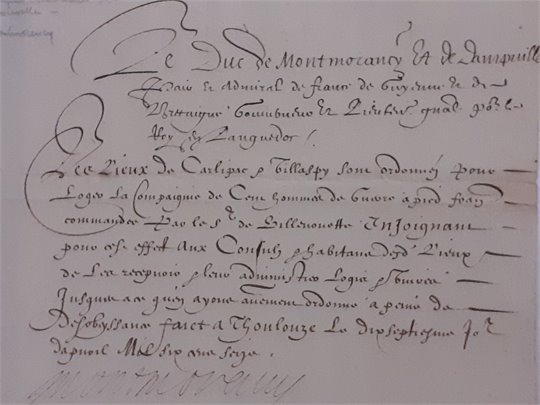 Le Duc de Montmorancy Et de Dampville
Pair et Admiral de france de Guyenne et de
Brettaigne Gouverneur et Lieuten. gnal po.r le
Roy en Languedoc /
Les Lieux de Carlipac & Villaspy sont ordonnéz Pour
Loger La Compaignie de Cent hommes de guerre a pied fran
commandée Par le s.r de Villenouette Enjoignant
pour cest effect Aux Consulz & habitans desd. Lieux
de Les recepvoir & leur administrer Logis &
Jusques a ce qu'en ayons autrement ordonné a peine de
desobeyssance faict a Tholouze Le dixseptiesme Jo.r
dapvril Mil six cens seize .
Montmorency